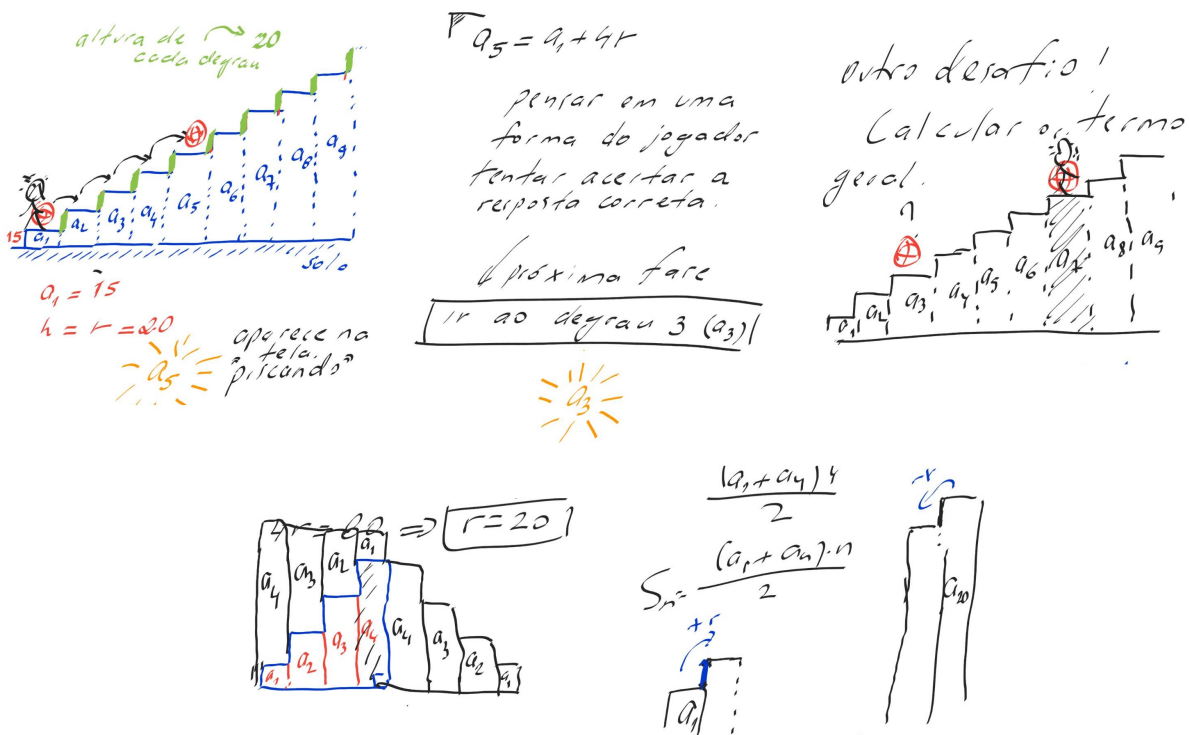 altura de → 20
cada degrau
a1 a2 a3 a4 a5 a6 a7 a8 a9
15
solo
a1 = 15
h = r = 20
a5
aparece na
tela
"piscando"
a5 = a1 + 4r
pensar em uma
forma do jogador
tentar acertar a
resposta correta.
↓ próxima fase
ir ao degrau 3 (a3)
a3
outro desafio!
Calcular o termo
geral.
?
a1 a2 a3 a4 a5 a6 a7 a8 a9
⇒ r = 20
a4 a3 a2 a1
a1 a2 a3 a4 a4 a3 a2 a1
(a1 + a4) 4
2
Sn = (a1 + an) . n
2
+r
a1
-r
a20